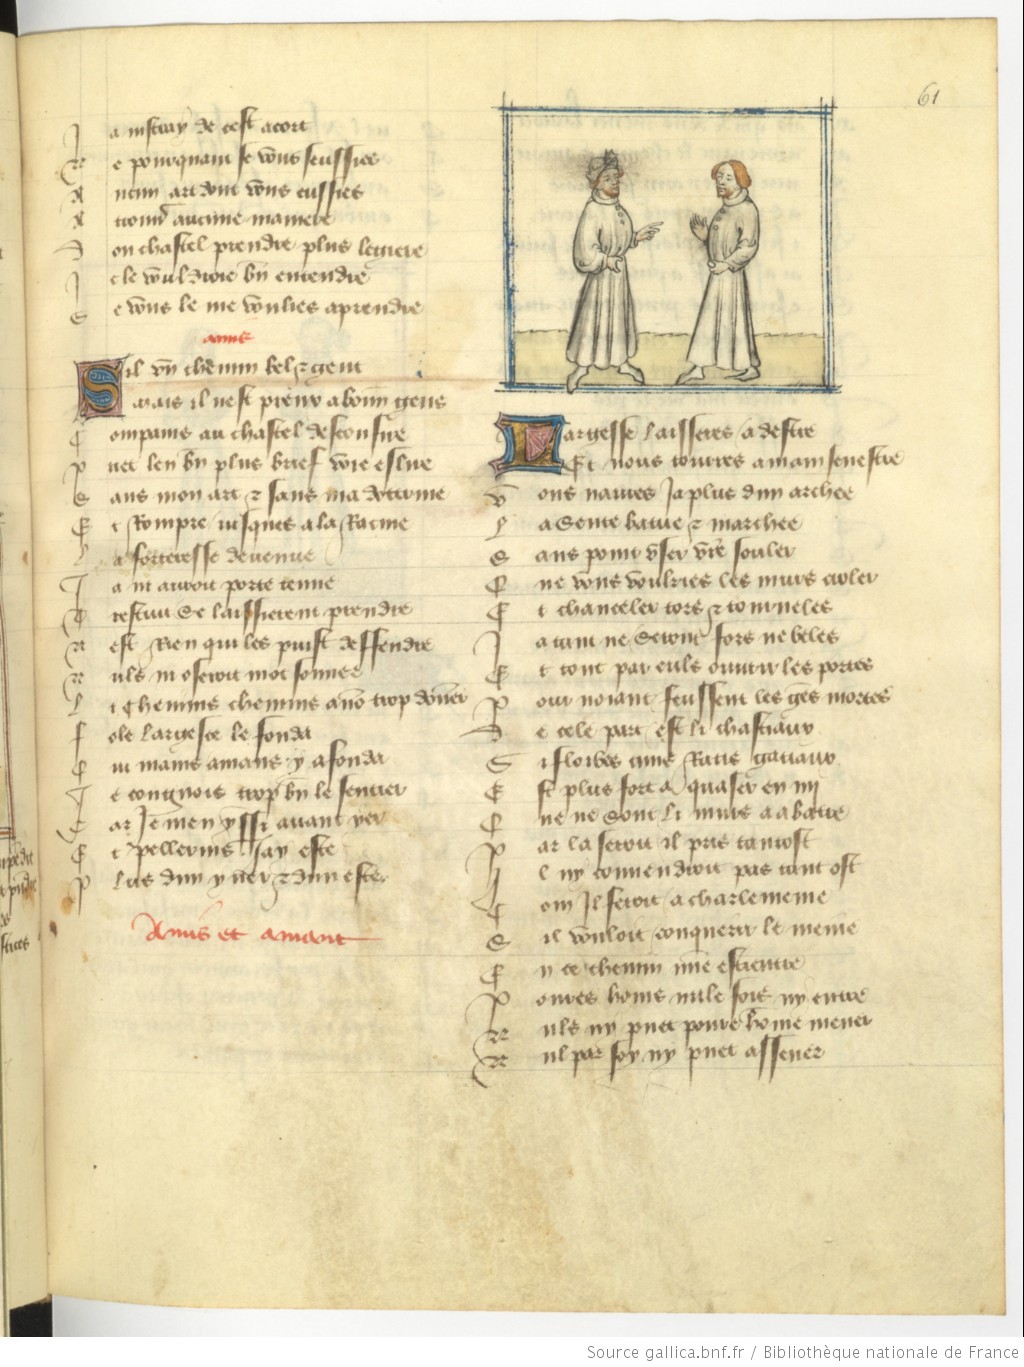 61
Ja nistray de cest acort
Ne pourquant se vous seussies
Aucun art dont vous eussies
Trouve aucune maniere
Dou chastel prendre plus legiere
Icle vouldroie bn entendre
Se vous le me voulies aprendre
amis
Sil vn chemin bel z gent
Mais il nest preux a bonn gens
Compains au chastel desconfire
Puet len bn plus brief voie eslire
Sans mon art z sans ma doctrine
Et Rompre iusques a la Racine
La forteresse de venue
Ja ni auroit porte tenue
Trestuit se laissierent prendre
Nest Rien qui les puist deffendre
Nuls ni oseroit mot sonner
Li chemins chemins a no trop donner
Fole largesce le fonda
Qui mains amans y afonda
Je congnois trop bn le sentier
Car Je men yssi auant yer
Et pellerins Jay este
Plus dun yuer z dun este
Amis et amant
Largesse laisseres a destre
Et nous tourres a main senestre
Vous naures Ja plus dun archee
La sente batue z marchee
Sans point vser vre souler
Que vous voulries les murs croler
Et chanceler tors z tourneles
Ja tant ne seront fors ne beles
Et tout par euls ouurir les portes
Pour noiant feussent les ges mortes
De cele part est li chastiaux
Si floibes cuns Ratis gatiaux
Est plus fort a quaser en iiij
Que ne sont li murs a abatre
Par la seroit il pris tantost
Il ny conuendroit pas tant ost
Com Jl feroit a charlemeine
Sil vouloit conquerir le meine
En ce chemin mie escientre
Poures homs nule fois ny entre
Nuls ny puet poure home mener
Nul par soy ny puet assener
Source gallica.bnf.fr / Bibliothèque nationale de France